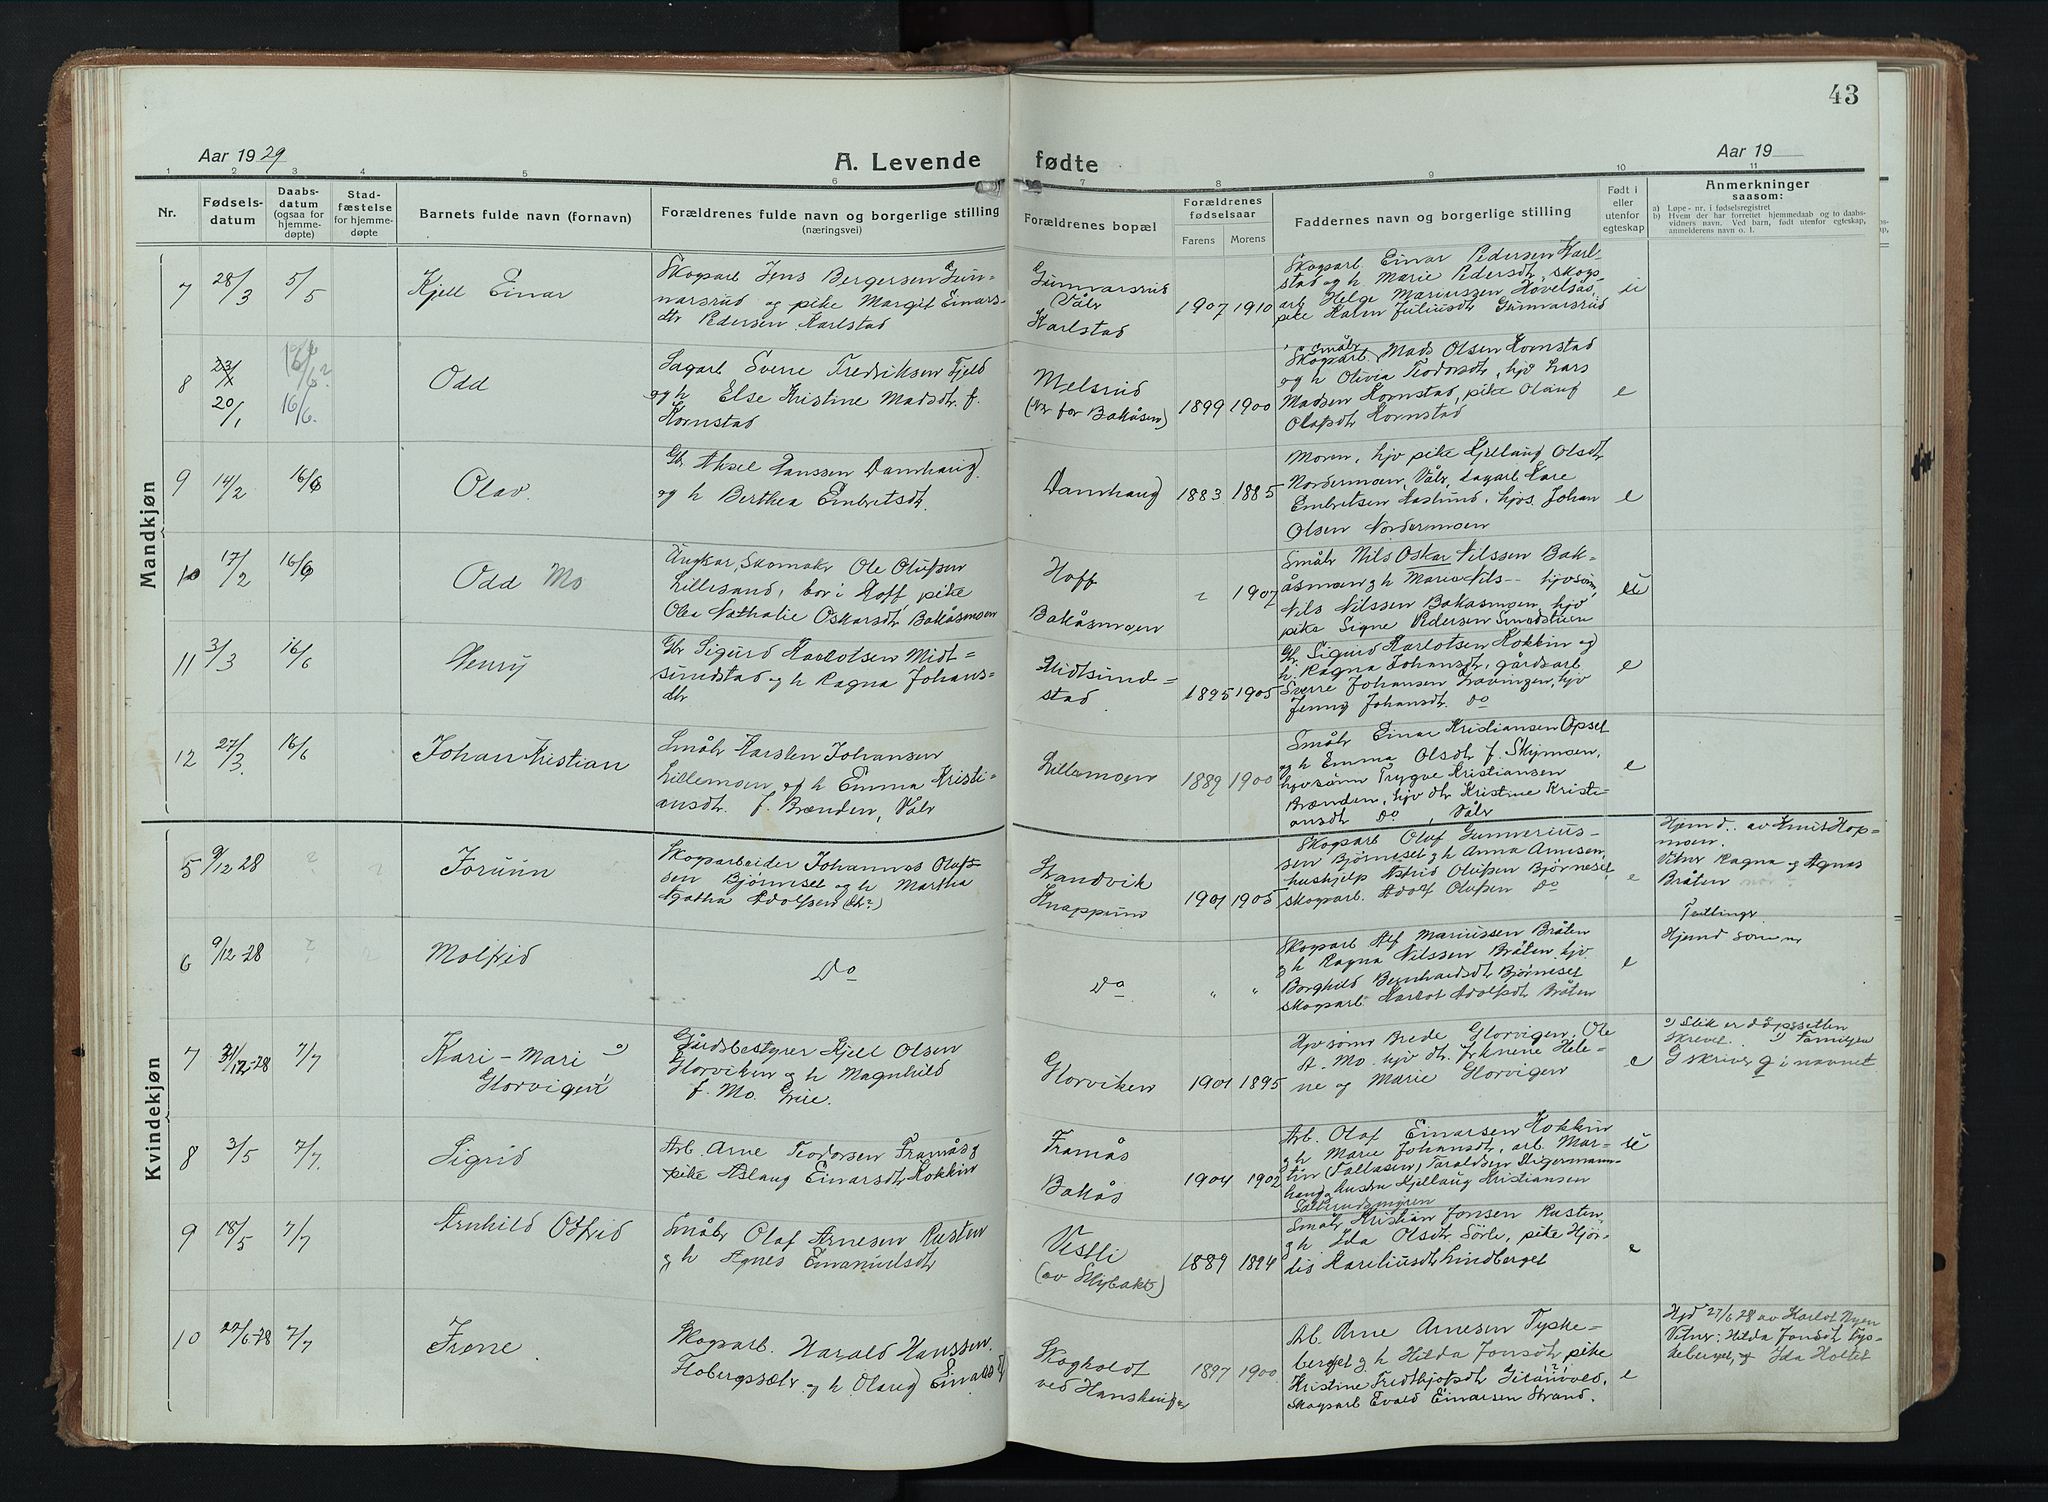 43
Aar 1929
A. Levende
fødte
Aar 19
1 2 3 4 5 6 7 8 9 10 11
Nr.
Fødsels-
datum
Daabs-
datum
(ogsaa for
hjemme-
døpte)
Stad-
fæstelse
for hjemme-
døpte
Barnets fulde navn (fornavn)
Forældrenes fulde navn og borgerlige stilling
(næringsvei)
Forældrenes bopæl
Forældrenes
fødselsaar
Farens
Morens
Faddernes navn og borgerlig stilling
Født i
eller
utenfor
egteskap
Anmerkninger
saasom:
a) Løpe-nr. i fødselsregistret
b) Hvem der har forrettet hjemmedaab og to daabs-
vidners navn. Ved barn, født utenfor egteskap,
anmelderens navn o. l.
Mandkjøn
7 28/3 5/5 Kjell Einar
Skogsarb Jens Bergersen Gun-
narsrud og pike Margit Einars-
dtr Pedersen Karlstad
Gunnarsrud
Våler
Karlstad
1907 1910
Skogsarb Einar Pedersen Karl-
stad og h Marie Pedersdtr, skogs
arb Helge Mariussen Hovelsås,
pike Karen Juliusdtr Gunnarsrud
u
8 20/1 16/6 Odd
Sagarb Sverre Fredriksen Fjeld
og h Else Kristine Madsdtr f.
Kornstad
Melsrud
(før Bakåsen)
1899 1900
småbr
Skogsarb Mads Olsen Kornstad
og h Olivia Teodorsdtr, hjv Lars
Madsen Kornstad, pike Olaug
Olafsdtr Kornstad
e
9 14/2 16/6 Olav.
Gbr Aksel Hanssen Damhaug
og h Berthea Embretsdtr.
Damhaug
1883 1885
Moren, hjv pike Kjellaug Olsdtr
Nordermoen, Våler, sagarb Kåre
Embretsen Haslund, hjvs. Johan
Olsen Nordermoen
e
10 17/2 16/6 Odd Mo
Ungkar, Skomaker Ole Olufsen
Lillesand, bor i Hoff pike
Olea Nathalie Oskarsdtr Bakåsmoen
Hoff
Bakåsmoen
1907
Småbr Nils Oskar Nilssen Bak-
åsmoen og h Marie Nils-- hjvsønn
Nils Nilssen Bakåsmoen, hjv
pike Signe Pedersen Smedstuen
u
11 3/3 16/6 Henry
Gbr Sigurd Karlotsen Midt-
sundstad og h Ragna Johans-
dtr
Midtsund-
stad
1895 1905
Gbr. Sigurd Karlotsen Kokkin og
h. Ragna Johansdtr, gårdsarb
Sverre Johansen, hjv
Jenny Johansdtr. do
e
12 27/3. 16/6 Johan Kristian
Småbr Karsten Johansen
Lillemoen og h Emma Kristi-
ansdtr. f. Brænden, Våler
Lillemoen
1889 1900
Småbr Einar Kristiansen Opset
og h Emma Olsdtr f. Skymoen,
hjvsønn Trygve Kristiansen
Brænden, hjv dtr Kristine Kristi-
ansdtr do, Våler
e
Kvindekjøn
5 9/12 28 ? ? Jorunn
Skogsarbeider Johannes Olufs-
sen Bjørneset og h Martha
Agatha Adolfsen (dtr?)
Sandvik
Knappum
1901 1905
Skogsarb Oluf Gunnerius-
sen Bjørneset og h Anna Arnesen,
hushjelp Astrid Olufsen Bjørneset,
skogsarb. Adolf Olufsen do
e
Hjemd.. av Knut Hop-
moen.
Vitner Ragna og Agnes
Bråten
Tvillinger
6 9/12-28 ? ? Molfrid
Do
Do
" "
Skogsarb Alf Mariussen Bråten
og h Ragna Nilssen Bråten, hjv.
Borghild Bernhardsdtr Bjørneset
skogsarb. Karlot Adolfsdtr Bråten
e
Hjemd som nr
7 31/12-28 7/7 Kari-Mari
Glorvigen
Gårdsbestyrer Kjell Olsen
Glorviken og h Magnhild
f. Mo. Grue.
Glorviken
1901 1895
Hjvsønn Brede Glorvigen, Ole
A. Mo. hjv dtr. Irknene Hele-
ne og Marie Glorvigen
e
Slik er dåpssetlen
skrevet. Familjen
G skriver g i navnet
8 3/5 7/7 Sigrid
Arb. Arne Teodorsen Framås og
pike Aslaug Einarsdtr Kokkin
Framås
Bakås
1904 1902
Arb. Olaf Einarsen Kokkin
og h Marie Johansdtr, arb. Mar-
tin (Tallasen) Taraldsen
og hustru Kjellaug Kristiansen
u
9 18/5 7/7 Arnhild Ostrid
Småbr Olaf Arnesen Rusten
og h Agnes Emanuelsdtr
Vestli
(av Slybakk)
1889 1894
Småbr Kristian Jonsen Rusten,
og h Ida Olsdtr Sørli, pike Hjør-
dis Kareliusdtr Lindberget
e
10 27/6-28 7/7 Irene.
Skogsarb. Harald Hanssen
Flobergsæter og h Olaug Einarsd
Skogholdt
ved Hanskaug
1897 1900
Arb. Arne Arnesen Tyske-
berget og h Hilda Jonsdtr, pike
Kristine Fredthjofsdtr,
Skogsarb Evald Einarsen Strand.
e
Hjd 27/6 28 av Karlot Nyen
Vitner: Hilda Jonsdtr Tys-
keberget, og Ida Holtet